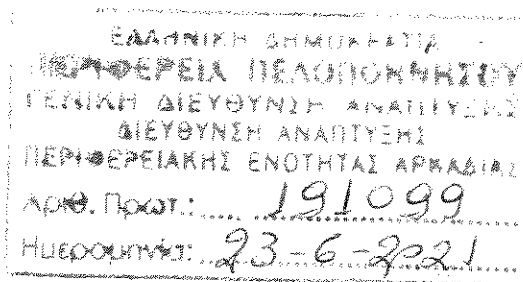 ΕΛΛΗΝΙΚΗ ΔΗΜΟΚΡΑΤΙΑ
ΠΕΡΙΦΕΡΕΙΑ ΠΕΛΟΠΟΝΝΗΣΟΥ
ΓΕΝΙΚΗ ΔΙΕΥΘΥΝΣΗ ΑΝΑΠΤΥΞΗΣ
ΔΙΕΥΘΥΝΣΗ ΑΝΑΠΤΥΞΗΣ
ΠΕΡΙΦΕΡΕΙΑΚΗΣ ΕΝΟΤΗΤΑΣ ΑΡΚΑΔΙΑΣ
Αριθ. Πρωτ.: 191099
Ημερομηνία: 23-6-2021